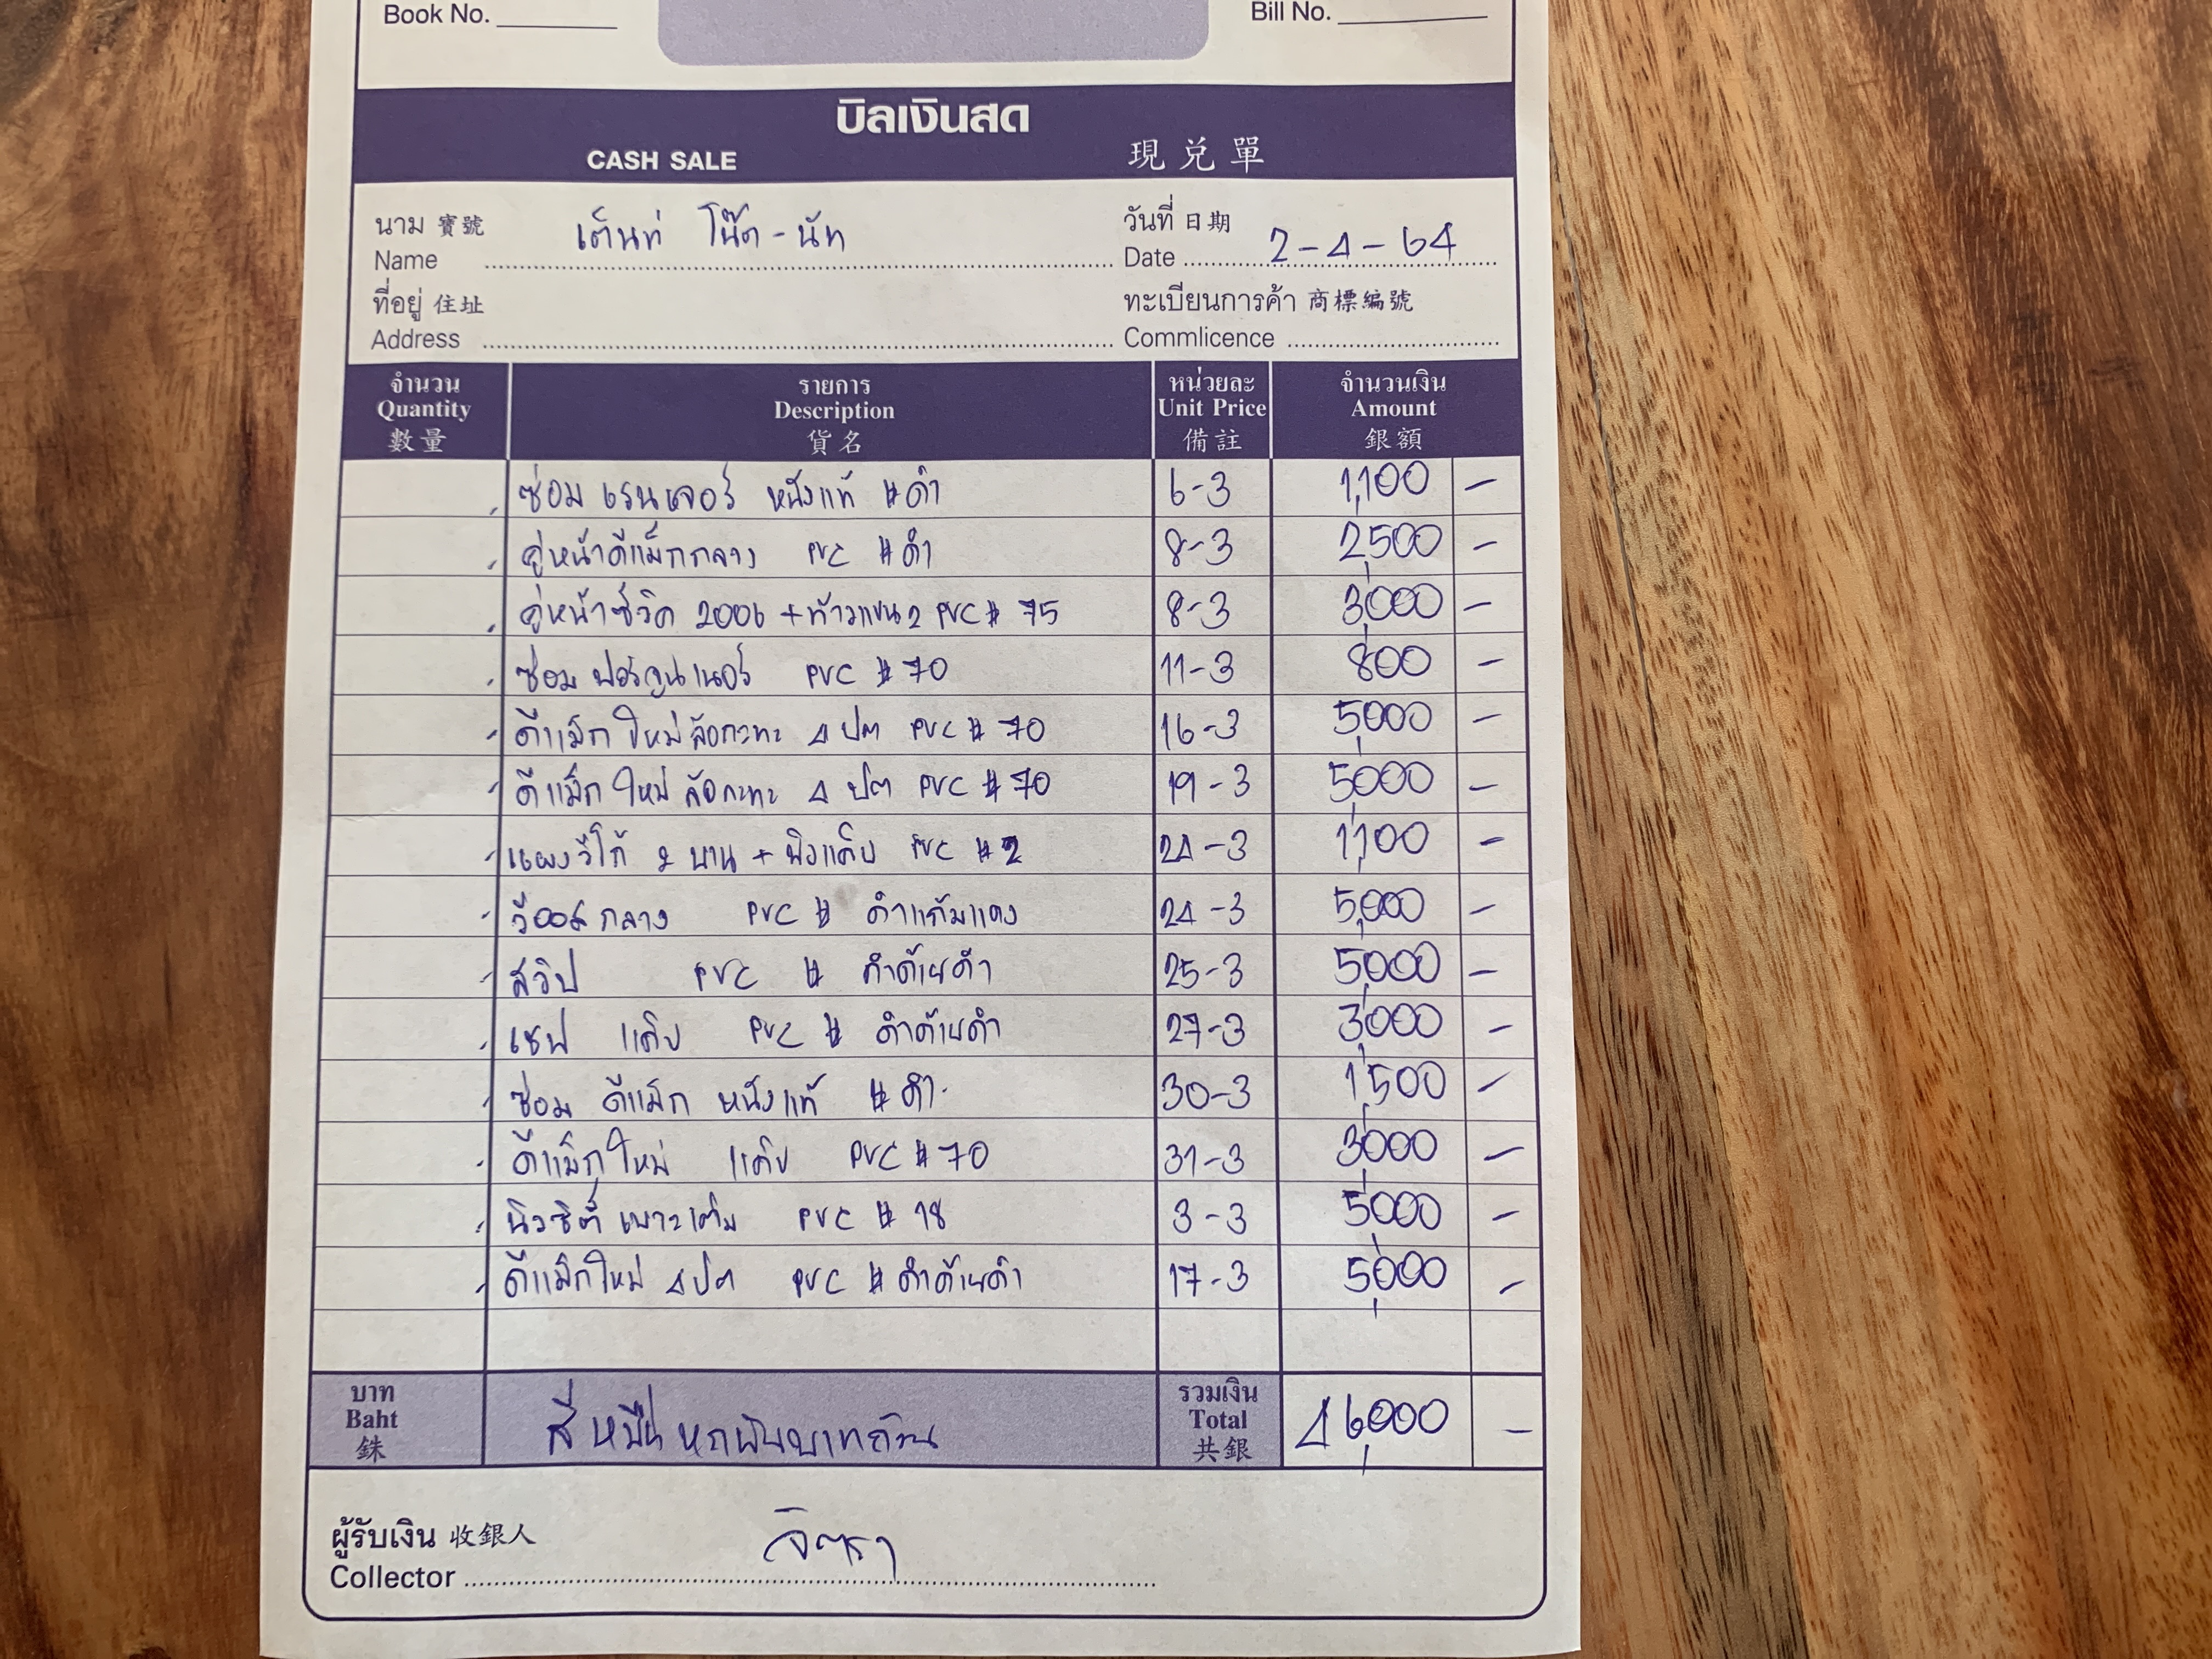 Book No. Bill No.
บิลเงินสด
CASH SALE 現兑單
นาม 寳號 เต็นท์ โน๊ต-นัท วันที่ 日期 2-4-64
Name Date
ที่อยู่ 住址 ทะเบียนการค้า 商標編號
Address Commlicence
จำนวน รายการ หน่วยละ จำนวนเงิน
Quantity Description Unit Price Amount
數量 貨名 備註 銀額
ซ่อม เรนเจอร์ หนังแท้ #ดำ 6-3 1,100 -
คู่หน้าดีแม็กกลาง PVC #ดำ 8-3 2,500 -
คู่หน้าซีวิค 2006 +ท้าวแขน 2 PVC # 75 8-3 3,000 -
ซ่อม ฟอร์จูนเนอร์ PVC # 70 11-3 800 -
ดีแม็กใหม่ล้อกะทะ 4 ปต PVC # 70 16-3 5,000 -
ดีแม็กใหม่ล้อกะทะ 4 ปต PVC # 70 19-3 5,000 -
แผงวีโก้ 2 บาน + PVC #2 24-3 1,100 -
วีออสกลาง PVC # ดำแถมแดง 24-3 5,000 -
สวิป PVC # ดำด้ายดำ 25-3 5,000 -
เชฟ แค็บ PVC # ดำด้ายดำ 27-3 3,000 -
ซ่อม ดีแม็ก หนังแท้ #ดำ 30-3 1,500 -
ดีแม็กใหม่ แค็บ PVC #70 31-3 3,000 -
นิวซิตี้ เบาะเต็ม PVC # 18 3-3 5,000 -
ดีแม็กใหม่ 4ปต PVC #ดำด้ายดำ 17-3 5,000 -
บาท รวมเงิน
Baht สี่หมื่นหกพันบาทถ้วน Total 46,000 -
銖 共銀
ผู้รับเงิน 收銀人 จิตรา
Collector